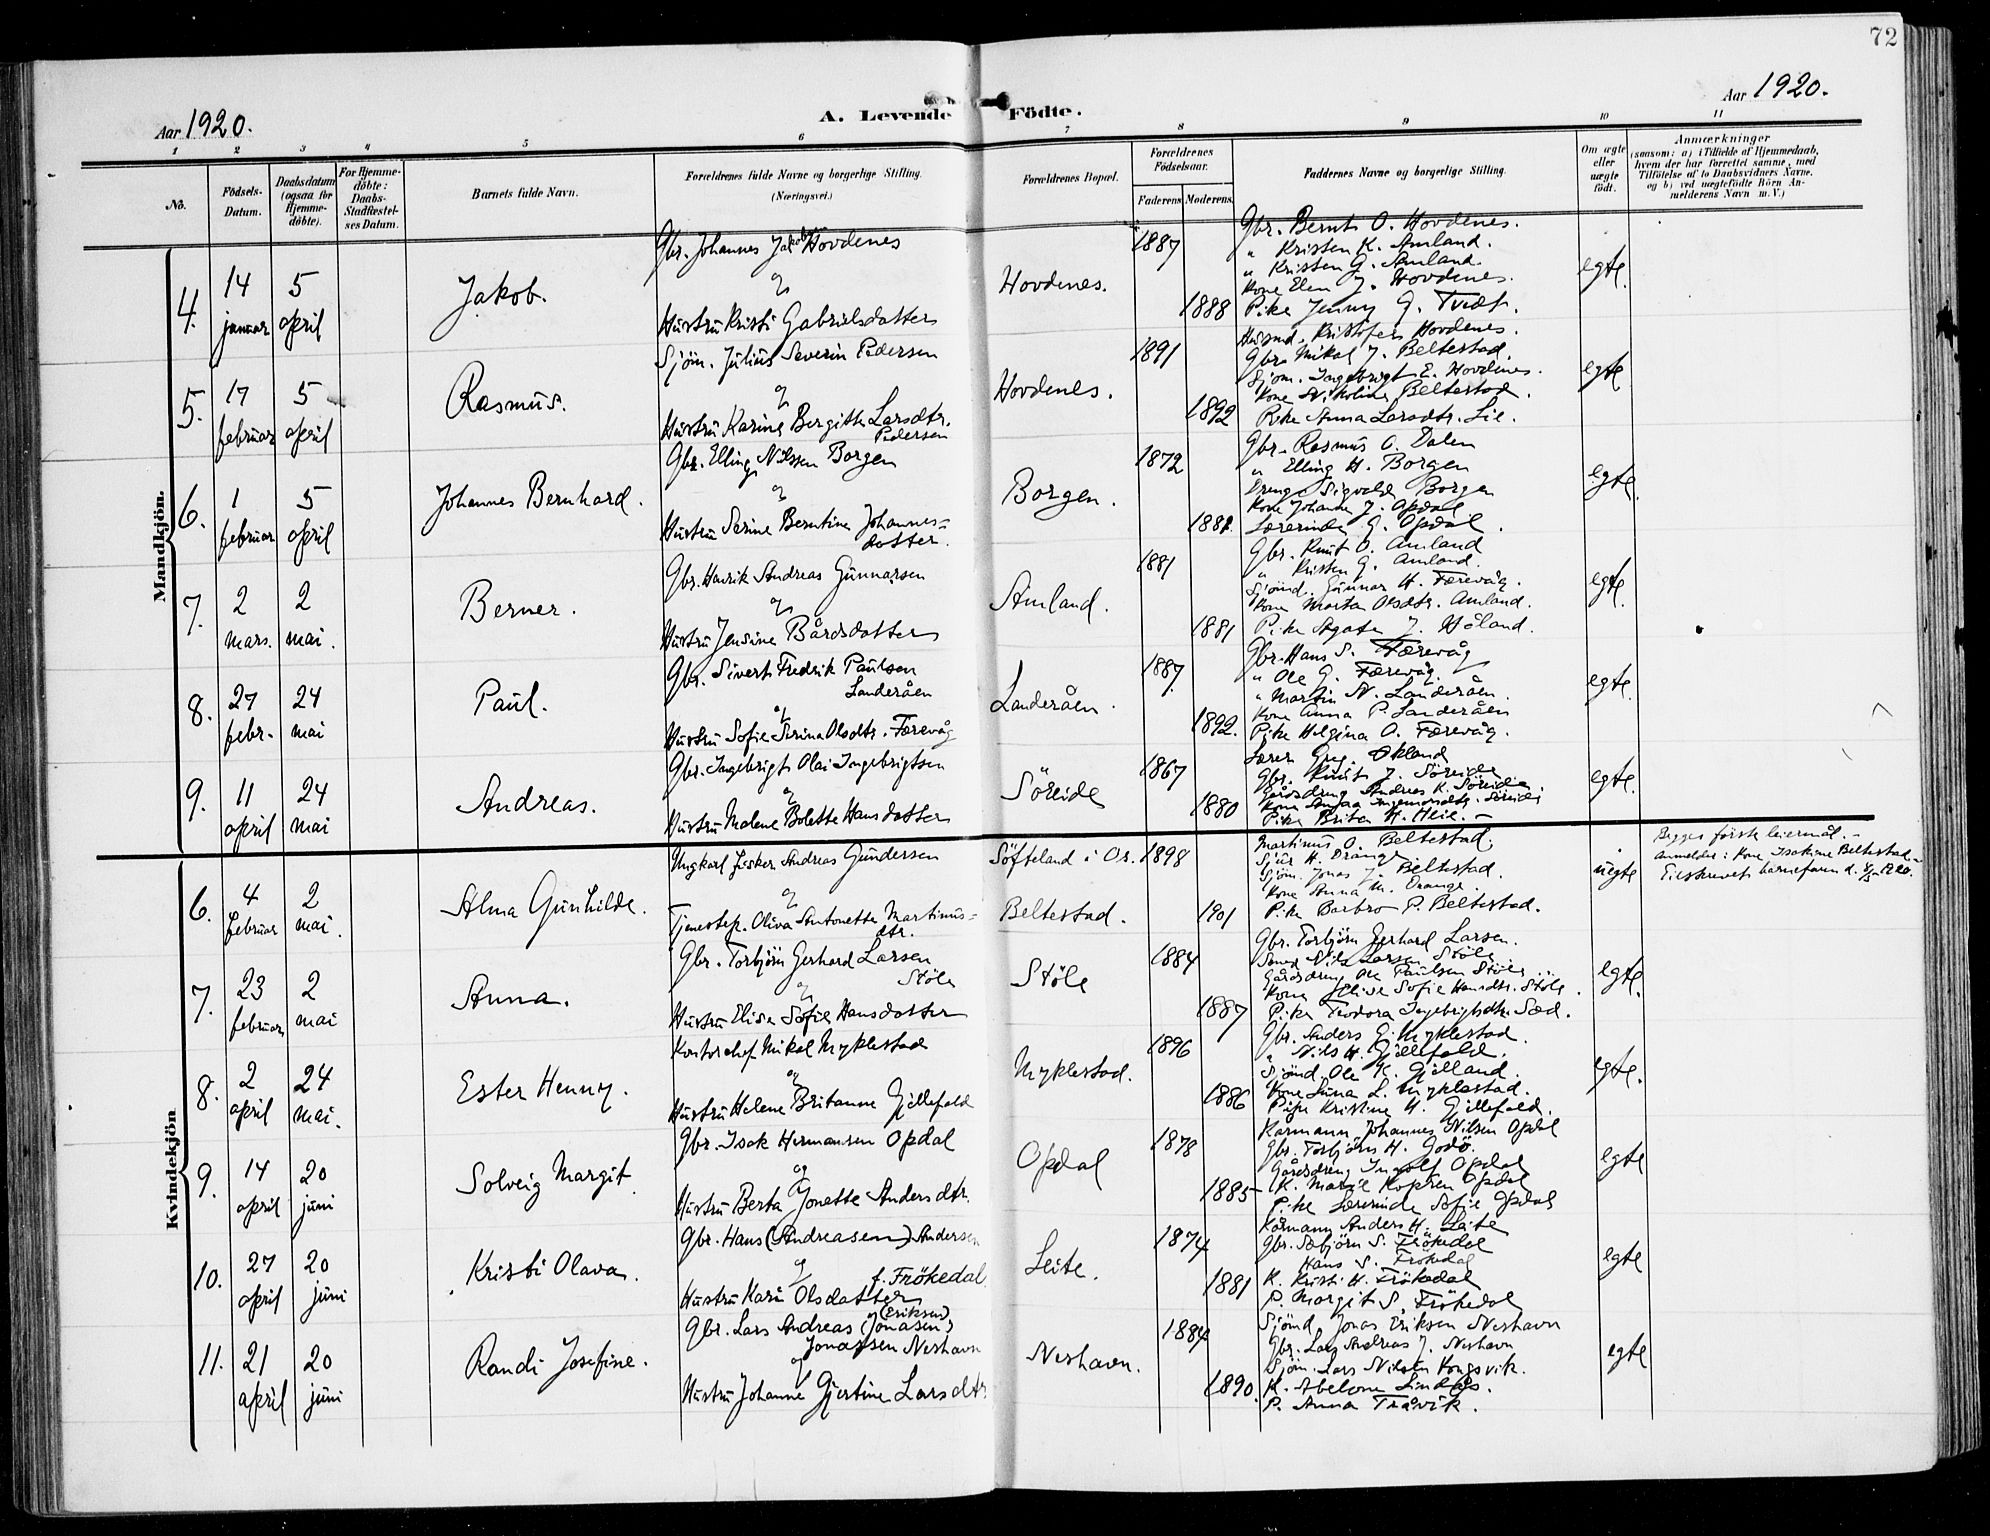 72
Aar 1920.
A. Levende Födte.
Aar 1920.
1 2 3 4 5 6 7 8 9 10 11
No.
Födsels-Datum.
Daabsdatum (ogsaa for Hjemmedöbte).
For Hjemmedöbte: Daabs-Stadfæstelses Datum.
Barnets fulde Navn.
Forældrenes fulde Navne og borgerlige Stilling. (Næringsvei.)
Forældrenes Bopæl.
Forældrenes Födselsaar.
Faderens. Moderens.
Faddernes Navne og borgerlige Stilling.
Om ægte eller uægte födt.
Anmærkninger
(saasom: a) i Tilfælde af Hjemmedaab, hvem der har forrettet samme, med Tilföielse af to Daabsvidners Navne. og b) ved uægtefödte Börn Anmelderens Navn m. V.)
Mandkjön.
4. 14 januar 5 april
Jakob.
Gbr. Johannes Jakobs. Hovdenes
og
Hustru Kristi Gabrielsdatter
Hovdenes.
1887
1888
Gbr. Bernt O. Hovdenes.
" Kristen K. Amland.
" Kristen G. Amland.
Kone Elen J. Hovdenes.
Pike Jenny G. Tvedt.
egte.
5. 17 februar 5 april
Rasmus.
Sjöm. Julius Severin Pedersen
og
Hustru Karina Bergitte Larsdtr.
Pedersen
Hovdenes.
1891
1892
Husmd. Kristofer Hovdenes.
Gbr. Mikal J. Beltestad.
Sjöm. Ingebrigt E. Hovdenes.
Kone N. Beltestad.
Pike Anna Larsdtr. Lie.
egte
6. 1 februar 5 april
Johannes Bernhard.
Gbr. Elling Nilssen Borgen
og
Hustru Serine Berntine Johannes-
datter.
Borgen.
1872
1881.
Gbr. Rasmus O. Dalen
" Elling H. Borgen
Dreng Sigvald Borgen
Kone Johanna J. Opdal
Lærerinde G. Opdal.
egte.
7. 2 mars. 2 mai.
Berner.
Gbr. Henrik Andreas Gunnarsen
og
Hustru Jensine Bårdsdatter
Amland.
1881
1881
Gbr. Knut O. Amland
" Kristen G. Amland.
Sjömd. Gunnar H. Færevåg.
Kone Marta Olsdtr. Amland.
Pike Agate J. Håland.
egte.
8. 27 febr. 24 mai
Paul.
Gbr. Sivert Fredrik Paulsen
Landeråen
og
Hustru Sofie Serina Olsdtr. Færevåg
Landeråen.
1887.
1892.
Gbr. Hans S. Færevåg
" Ole G. Færevåg.
" Martin N. Landeråen.
Kone Anna P. Landeråen
Pike Helgina O. Færevåg.
egte.
9. 11 april 24 mai
Andreas.
Gbr. Ingebrigt Olai Ingebrigtsen
og
Hustru Malene Bolette Hansdatter
Söreide
1867
1880
Lærer Greg. Økland
Gbr. Knut J. Söreide
Gårdsdreng Andreas K. Söreide
Kone Ingemundtr. Söreide
Pike Brita H. Heie.
egte.
Kvindekjön
6. 4 februar 2 mai.
Alma Gunhilde.
Ungkarl fisker Andreas Gundersen
og
Tjenestep. Oliva Antonette Martinus-
dtr.
Söfteland i Os.
Beltestad.
1898
1901
Martinus O. Beltestad.
Sjur H. Drange
Sjöm. Jonas J. Beltestad.
Kone Anna M. Drange.
Pike Barbro P. Beltestad.
uegte
Begges første leiermål.
Anmelder: Kone Beltestad.
Tilskrevet barnefaren d.
7. 23 februar 2 mai
Anna.
Gbr. Torbjörn Gerhard Larsen
Støle
og
Hustru Elise Sofie Hansdatter
Støle
1884
1887
Gbr. Torbjörn Gerhard Larsen.
Nils Larsen Støle
Gårdsdreng Ole Paulsen Støle
Kone Elise Sofie Hansdtr. Støle.
Pike Teodora Ingebrigtsdtr. Sæd.
egte.
8. 2 april 24 mai.
Ester Henny.
Kontorchef Mikal Myklestad
og
Hustru Helene Britanne Gjellefald
Myklestad.
1896
1886
Gbr. Anders E. Myklestad.
" Nils H. Gjellefald.
Sjömd. Ole K. Gjelland.
Kone Luna L. Myklestad.
Pike Kristine H. Gjellefald.
egte.
9. 14 april 20 juni
Solveig Margit.
Gbr. Isak Hermansen Opdal
og
Hustru Berta Jonette Andersdtr.
Opdal
1878
1885
Kårmann Johannes Nilsen Opdal
Gbr. Torbjörn H. Godö.
Gårdsdreng Ingolf Opdal
K. Marie Kopren Opdal
Pike Lærerinde Sofie Opdal
egte
10. 27 april 20 juni
Kristi Olava.
Gbr. Hans (Andreasen) Andersen
og
f. Frökedal.
Hustru Kari Olsdatter
Leite.
1874
1881
Kårmann Anders H. Leite
Gbr. Sæbjörn S. Frökedal
Hans S. Frökedal
K. Kristi H. Frökedal
P. Margit S. Frökedal
egte
11. 21 april 20 juni
Randi Josefine.
(Eriksen)
Gbr. Lars Andreas (Jonasen)
Jonassen Neshavn
og
Hustru Johanne Gjertine Larsdtr
Neshavn.
1884
1890.
Sjömd. Jonas Eriksen Neshavn
Gbr. Lars Andreas J. Neshavn
Sjöm. Lars Nilsen Vongsvik.
K. Abelone Lindås.
P. Anna Tråvik.
egte